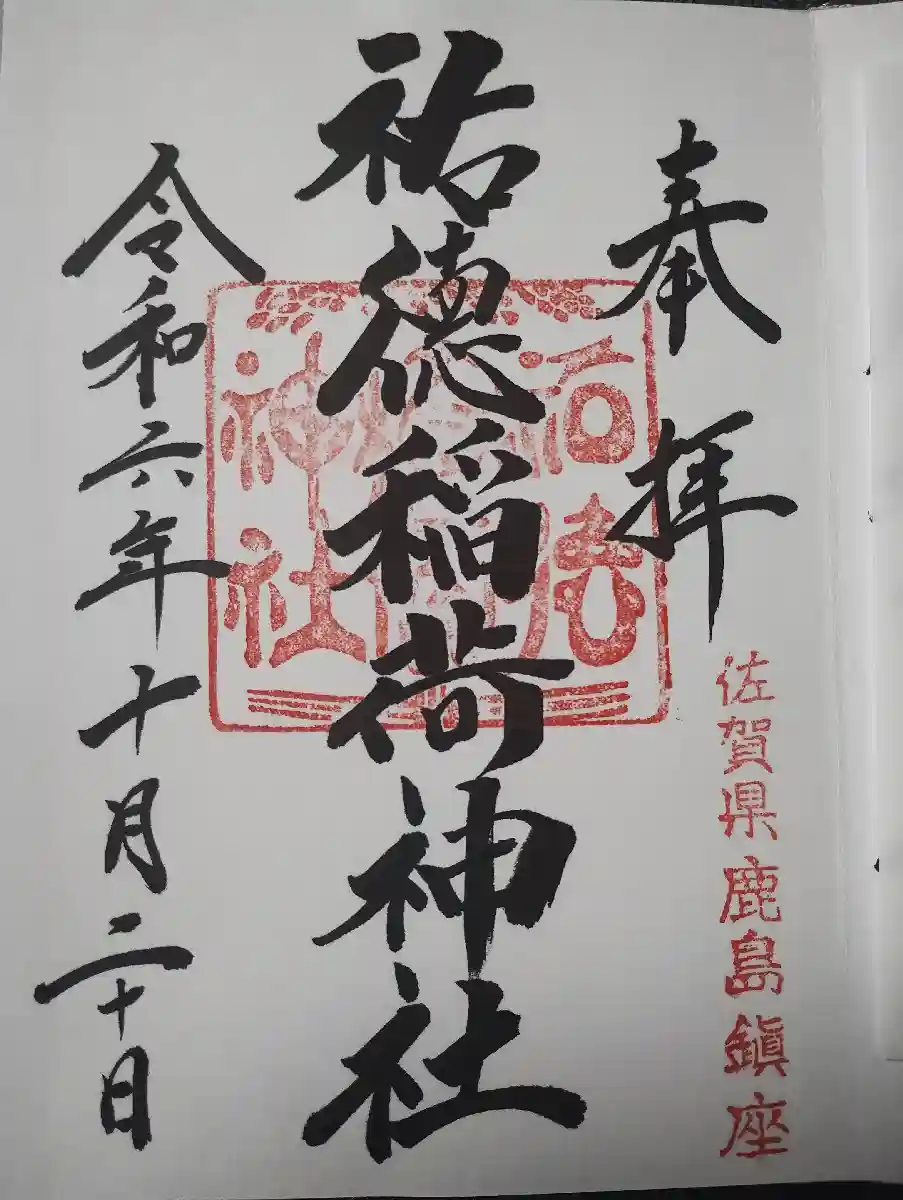 奉拝
佐賀県鹿島鎮座
祐徳稲荷神社
祐徳稲荷神社
令和六年十月二十日